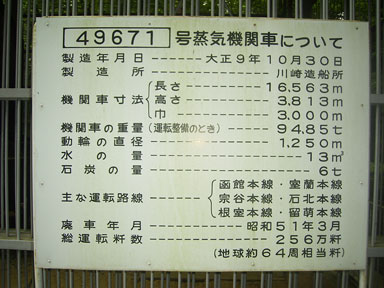 49671 号蒸気機関車について
製造年月日 大正9年10月30日
製造所 川崎造船所
機関車寸法 長さ 16,563m
高さ 3,813m
巾 3,000m
機関車の重量(運転整備のとき) 94,85t
動輪の直径 1,250m
水の量 13㎥
石炭の量 6t
主な運転路線 函館本線・室蘭本線
宗谷本線・石北本線
根室本線・留萌本線
廃車年月 昭和51年3月
総運転粁数 256万粁
(地球約64周相当粁)